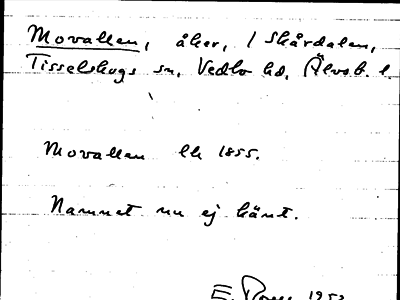 Movallen, åker, 1 Skårdalen,
Tisselskogs sn, Vedbo hd, Älvsb. l.
Movallen lh 1855.
Namnet nu ej känt.
E.